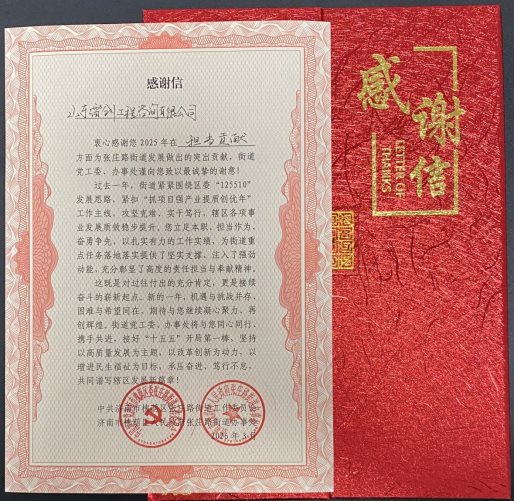 感谢信
工程咨询有限公司
衷心感谢您 2025 年在 担当贡献
方面为张庄路街道发展做出的突出贡献，街道
党工委、办事处谨向您致以最诚挚的谢意！
过去一年，街道紧紧围绕区委“125510”
发展思路，紧扣“抓项目强产业提质创优年”
工作主线，攻坚克难，实干笃行，辖区各项事
业发展质效稳步提升。您立足本职，担当作为，
奋勇争先，以扎实有力的工作实绩，为街道重
点任务落地落实提供了坚实支撑、注入了强劲
动能，充分彰显了高度的责任担当与奉献精神。
这既是对过往付出的充分肯定，更是接续
奋斗的崭新起点。新的一年，机遇与挑战并存，
困难与希望同在，期待与您继续凝心聚力、再
创辉煌。街道党工委、办事处将与您同心同行、
携手共进，接好“十五五”开局第一棒，坚持
以高质量发展为主题，以改革创新为动力，以
增进民生福祉为目标，承压奋进、笃行不怠，
共同谱写辖区发展新篇章！
中共济南市槐荫区张庄路街道工作委员会
济南市槐荫区人民政府张庄路街道办事处
2026 年 3
感谢信
LETTER OF
THANKS